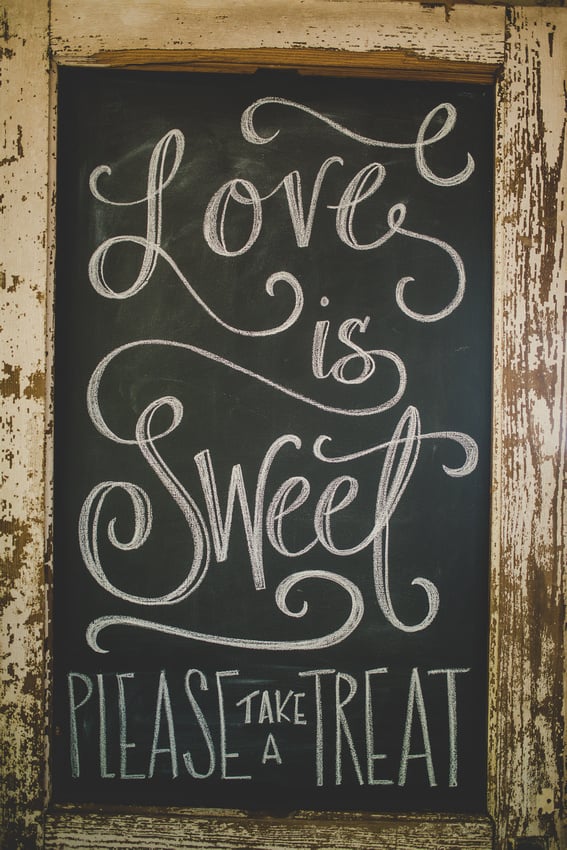 Love
is
Sweet
PLEASE TAKE A TREAT